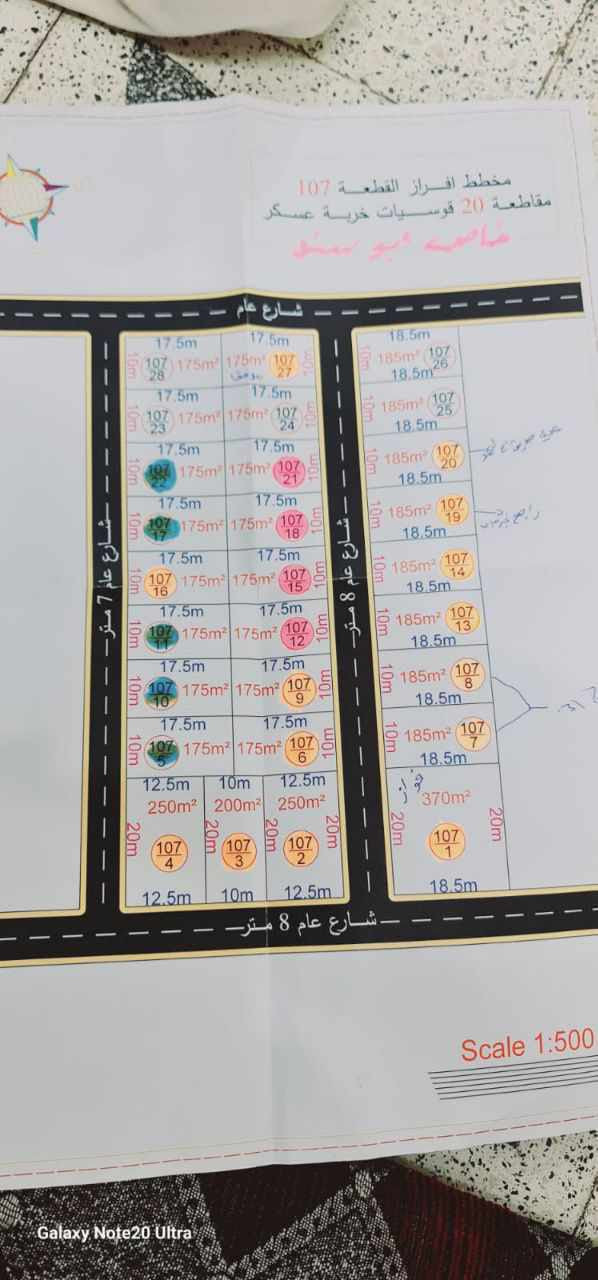 مخطط افراز القطعة 107
مقاطعة 20 قوسيات خربة عسكر
شارع عام
17.5m 17.5m 18.5m
10m 107/28 175m² 175m² 107/27 10m 10m 185m² 107/26
17.5m 17.5m 18.5m
10m 107/23 175m² 175m² 107/24 10m 10m 185m² 107/25
17.5m 17.5m 18.5m
10m 107/22 175m² 175m² 107/21 10m 10m 185m² 107/20
17.5m 17.5m 18.5m
10m 107/17 175m² 175m² 107/18 10m 10m 185m² 107/19
17.5m 17.5m 18.5m
10m 107/16 175m² 175m² 107/15 10m 10m 185m² 107/14
17.5m 17.5m 18.5m
10m 107/11 175m² 175m² 107/12 10m 10m 185m² 107/13
17.5m 17.5m 18.5m
10m 107/10 175m² 175m² 107/9 10m 10m 185m² 107/8
17.5m 17.5m 18.5m
10m 107/5 175m² 175m² 107/6 10m 10m 185m² 107/7
18.5m
شارع عام 7 متر
شارع عام 8 متر
12.5m 10m 12.5m
250m² 200m² 250m² 370m²
20m 20m 20m 20m 20m 20m
107/4 107/3 107/2 107/1
12.5m 10m 12.5m 18.5m
شارع عام 8 متر
Scale 1:500
Galaxy Note20 Ultra